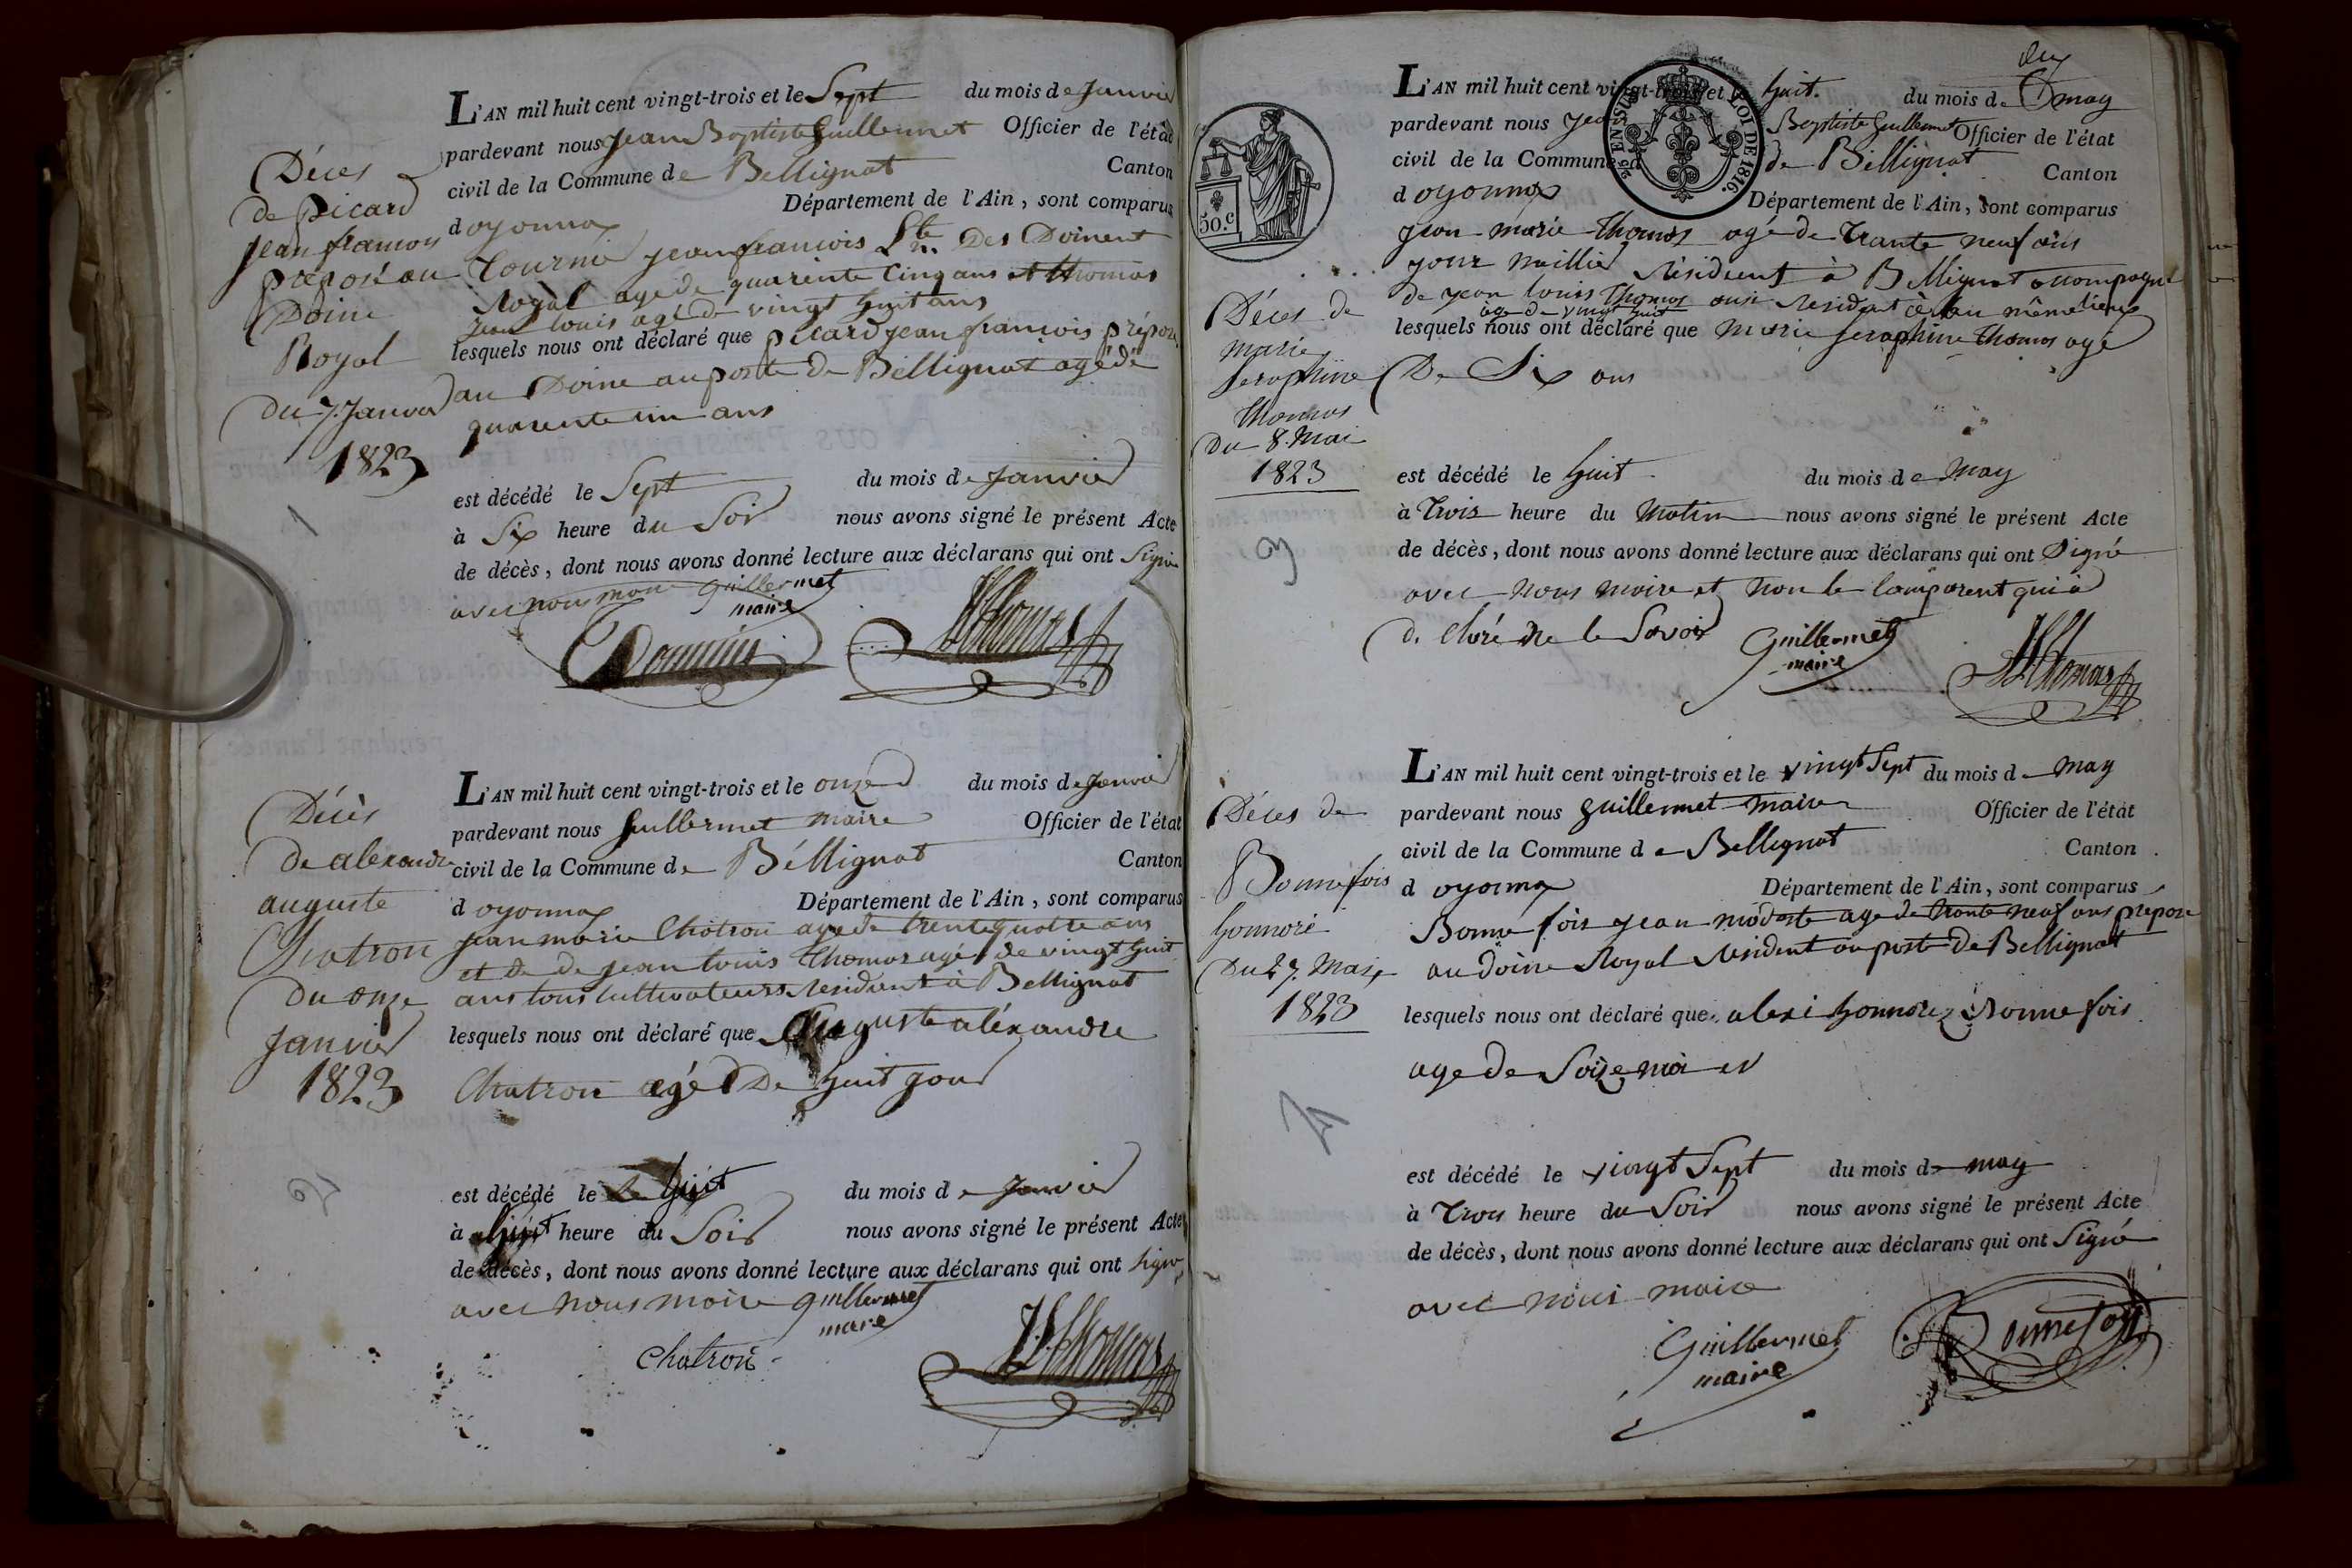 Déces
de picard
jean francois
préposé au
Doine
Royal
du 7. Janvier
1823
1
L'AN mil huit cent vingt-trois et le Sept du mois de Janvier
pardevant nous Jean Baptiste Guillermet Officier de l'état
civil de la Commune de Bellignat Canton
doyonnax Département de l'Ain, sont comparus
jean francois Lte. Des Doinent
Royal age de quarente Cinq ans et thomas
jean louis agé de vingt huit ans
lesquels nous ont déclaré que picard jean françois prépose
au Doine au poste de Bellignat agé de
quarente un ans
est décédé le Sept du mois de Janvier
à Six heure du Soir nous avons signé le présent Acte
de décès, dont nous avons donné lecture aux déclarans qui ont Signé
avec nous maire Guillermet
maire
JLThomas
Décès
de alexandre
auguste
Chatron
du onze
Janvier
1823
2
L'AN mil huit cent vingt-trois et le onze du mois de Janvier
pardevant nous Guillermet maire Officier de l'état
civil de la Commune de Béllignat Canton
doyonnax Département de l'Ain, sont comparus
jean marie Chatron age de trente quatre ans
et de de jean louis thomas agé de vingt huit
ans tous cultivateurs residient à Bellignat
lesquels nous ont déclaré que Auguste aléxandre
Chatron agé De huit jour
est décédé le Le huit du mois de Janvier
à huit heure du Soir nous avons signé le présent Acte
de décès, dont nous avons donné lecture aux déclarans qui ont signé
avec nous maire Guillermet
maire
Chatron
JLThomas
50.c
25 EN SUS LOI DE 1816.
Déces de
marie
Seraphine
thomas
du 8. Mai
1823
3
L'AN mil huit cent vingt-trois et le huit. du mois de may
pardevant nous jean Baptiste Guillermet Officier de l'état
civil de la Commune de Béllignat Canton
doyonnax Département de l'Ain, sont comparus
jean marie thomas agé de trante neuf ans
résident à Bellignat accompagné
de jean louis thomas ausi resident au même lieux
age de vingt huit
lesquels nous ont déclaré que marie seraphine thomas agé
De Six ans
est décédé le huit du mois de may
à trois heure du matin nous avons signé le présent Acte
de décès, dont nous avons donné lecture aux déclarans qui ont Signé
avec nous maire et non le comparent qui à
de claré ne le Savoir Guillermet
maire
JLThomas
Déces de
Bonnefois
honnoré
du 27. Mai
1823
4
L'AN mil huit cent vingt-trois et le vingt Sept du mois de may
pardevant nous Guillermet maire Officier de l'état
civil de la Commune de Bellignat Canton
doyonnax Département de l'Ain, sont comparus
Bonne fois jean modeste age de trante neuf ans prepose
au doine Royal résident au poste de Bellignat
lesquels nous ont déclaré que alexi honnorez Bonne fois
age de Soize mois
est décédé le vingt Sept du mois de may
à trois heure du Soir nous avons signé le présent Acte
de décès, dont nous avons donné lecture aux déclarans qui ont Signé
avec nous maire
Guillermet
maire
Bonnefoy